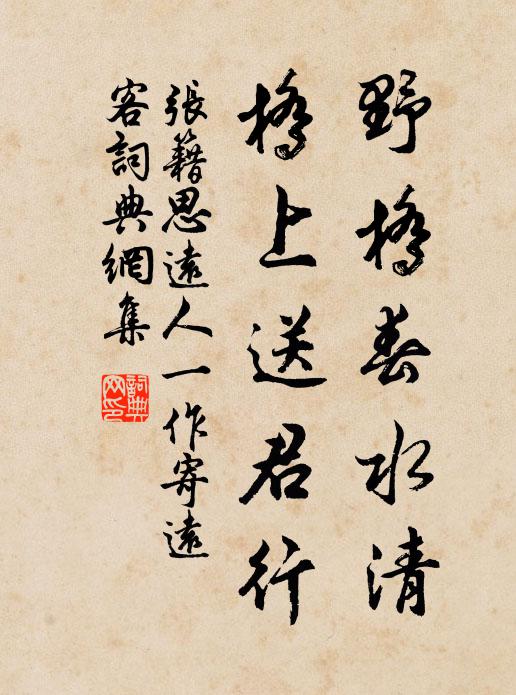 野橋春水清
橋上送君行
張籍思遠人一作寄遠
客詞典網集
詞典网印